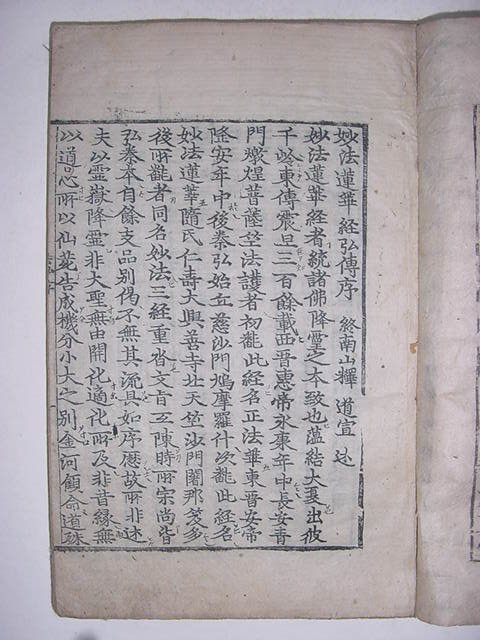 妙法蓮華經弘傳序 終南山釋 道宣 述
妙法蓮華経者統諸佛降靈之本致也蘊結大夏出彼
千岭東傳震旦三百餘載西晋惠帝永康年中長安青
門燉煌菩薩竺法護者初飜此経名正法華東晋安帝
隆安年中後秦弘始丘慈沙門鳩摩羅什次飜此経名
妙法蓮華隋氏仁壽大興善寺北天竺沙門闍那笈多
後所飜者同名妙法三經重沓文旨互陳時所宗尚皆
弘秦本自餘支品別偈不無其流具如序歷故所非述
夫以靈嶽降霊非大聖無由開化適化所及非昔緣無
以道心所以仙苑告成機分小大之別金河顧命道殊